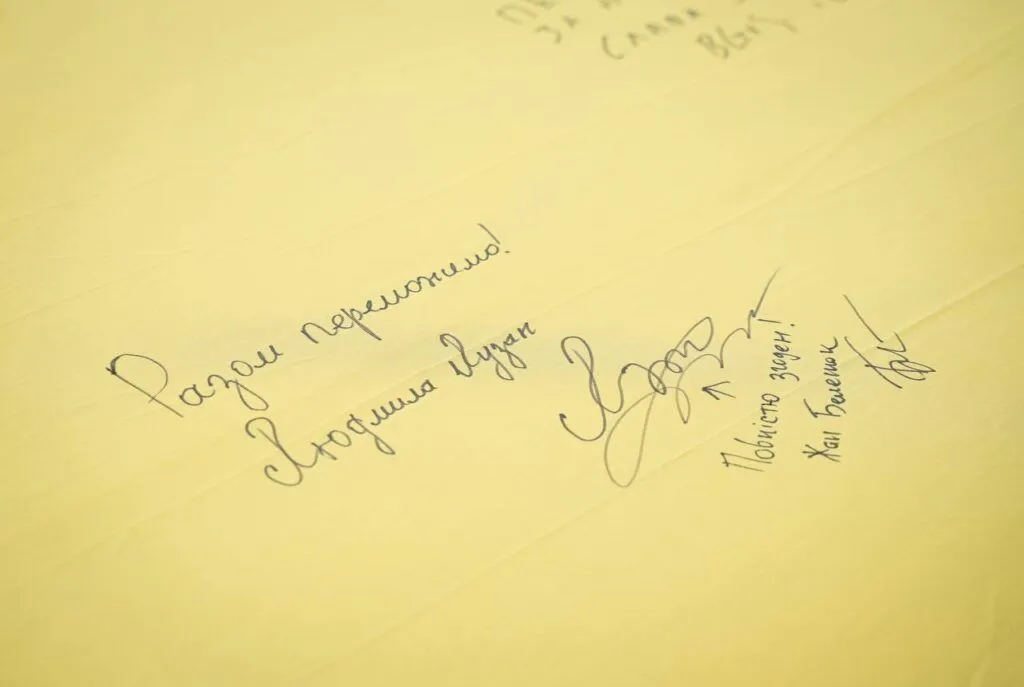 ЗА
СЛАВА
Разом переможемо!
Людмила Лузан
Повністю згоден!
Жан Беленюк